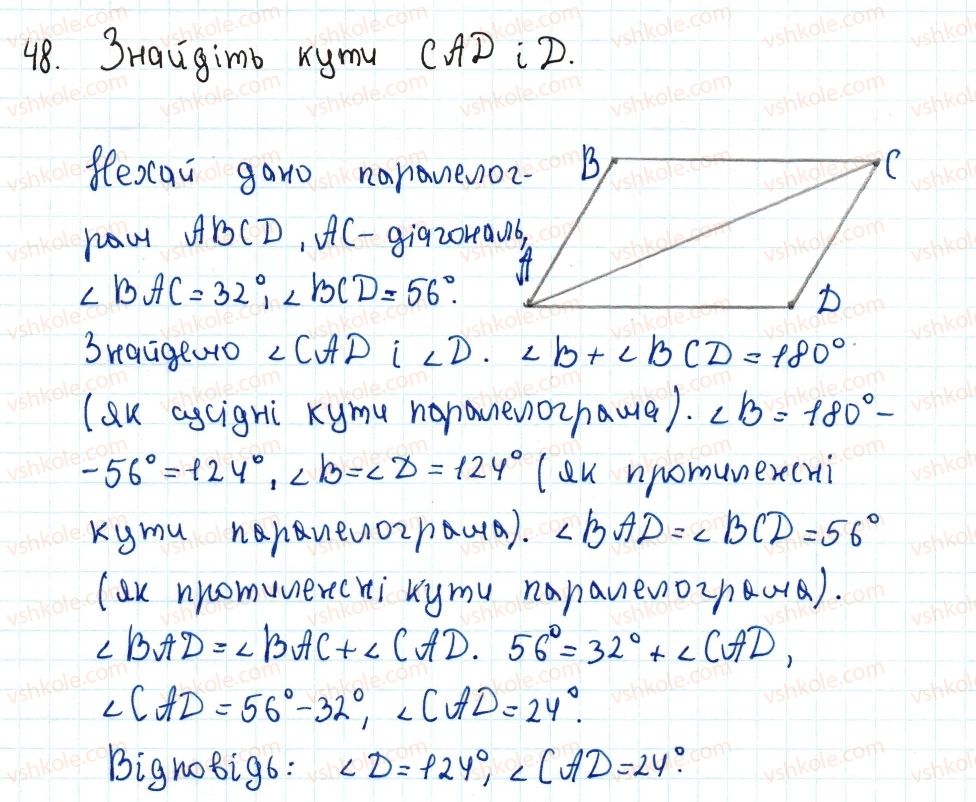 48. Знайдіть кути CAD і D.
Нехай дано паралелог-
рам ABCD, AC - діагональ,
∠BAC = 32°, ∠BCD = 56°.
B C
A D
Знайдемо ∠CAD і ∠D. ∠B + ∠BCD = 180°
(як сусідні кути паралелограма). ∠B = 180° -
- 56° = 124°, ∠B = ∠D = 124° (як протилежні
кути паралелограма). ∠BAD = ∠BCD = 56°
(як протилежні кути паралелограма).
∠BAD = ∠BAC + ∠CAD. 56° = 32° + ∠CAD,
∠CAD = 56° - 32°, ∠CAD = 24°.
Відповідь: ∠D = 124°, ∠CAD = 24°.
vshkole.com